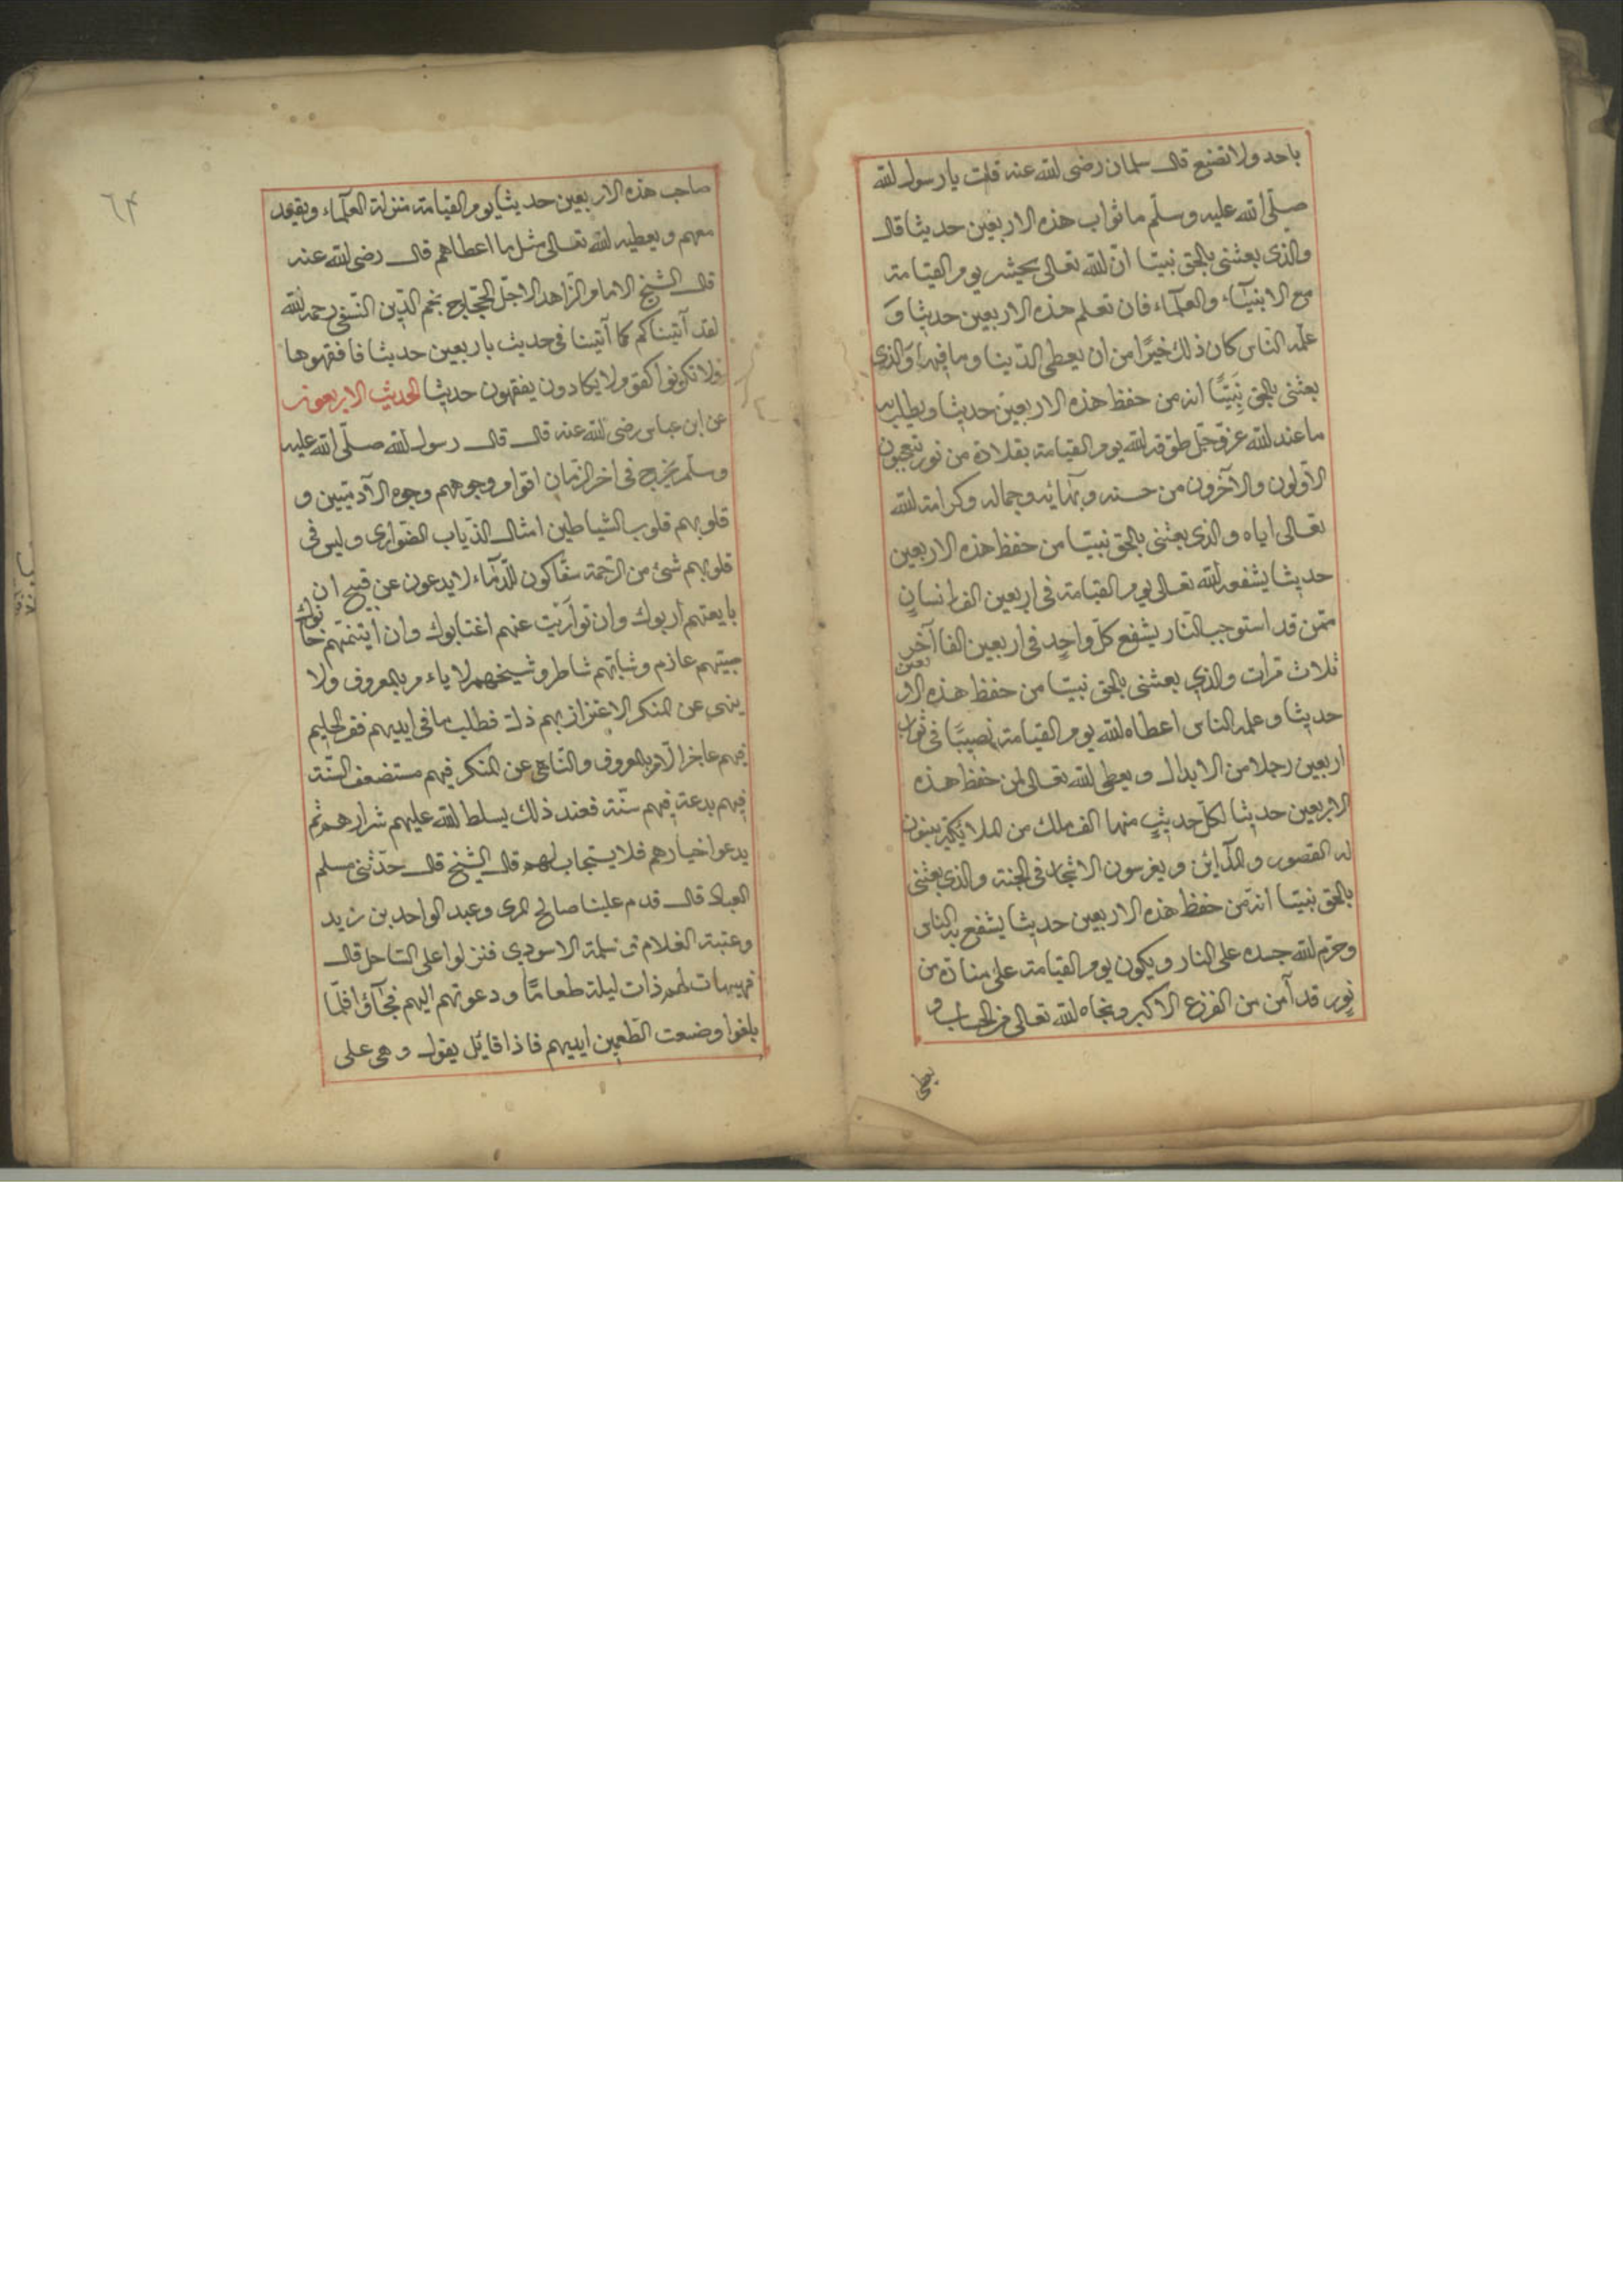 باحد ولا تضيع قال سلمان رضى الله عنه قلت يا رسول الله
صلّى الله عليه وسلّم ما ثواب هذه الاربعين حديثا قال
والذى بعثنى بالحق نبيّا انّ الله تعالى يحشره يوم القيامة
مع الانبيآء والعلمآء فان تعلم هذه الاربعين حديثا و
علّمه النّاس كان ذلك خيرًا من ان يعطى الدّينا وما فيها والّذى
بعثنى بالحق نَبِيًّا انه من حفظ هذه الاربعين حديثا ويطلب به
ما عند الله عزّ وجلّ طوّقه الله يوم القيامة بقلادة من نور تتعجبون
الاوّلون والآخرون من حسنه وبهائه وجماله وكرامة الله
تعالى اياه والذى بعثنى بالحق نبيّا من حفظ هذه الاربعين
حديثا يشفعه الله تعالى يوم القيامة فى اربعين الف انسانٍ
ممّن قد استوجب النّار يشفع كلّ واحدٍ فى اربعين الفا آخر
ثلاث مرّات والذي بعثنى بالحق نبيّا من حفظ هذه الاربعين
حديثا وعلمه الناس اعطاه الله يوم القيامة نصيبًا فى ثواب
اربعين رجلا من الابدال ويعطى الله تعالى لمن حفظ هذه
الاربعين حديثا لكلّ حديثٍ منها الف ملك من الملائكة يبنون
له القصور والمدآئن ويغرسون الاشجار فى الجنة والذي بعثنى
بالحق نبيّا انه من حفظ هذه الاربعين حديثا يشفع به النّاس
وحرّم الله جسده على النار ويكون يوم القيامة على منارة من
نور قد آمن من الفزع الاكبر ونجاه الله تعالى من الحساب و
يعطى
٦٤
صاحب هذه الاربعين حديثا يوم القيامة منزلة العلمآء ويقعد
معهم ويعطيه الله تعالى مثل ما اعطاهم قال رضى الله عنه
قال الشيخ الامام الزّاهد الاجلّ الحجّاج نجم الدّين النّسفى رحمه الله
لقد آتيناكم كما آتينا فى حديث باربعين حديثا فافقهوها
ولا تكونوا كقوم لا يكادون يفقهون حديثا الحديث الاربعون
عن ابن عباس رضى الله عنه قال قال رسول الله صلّى الله عليه
وسلّم يخرج فى اخر الزّمان اقوام وجوههم وجوه الآدميّين و
قلوبهم قلوب الشياطين امثال الذّياب الضّوارى وليس فى
قلوبهم شئ من الرّحمة سفّاكون للدّمآء لا يدعون عن قبيح ان
بايعتهم اربوك وان توارَيْت عنهم اغتابوك وان ايتمنتهم خانوك
صبيّهم عازم وشابّهم شاطر وشيخهم لا ياءمر بالمعروف ولا
ينهى عن المنكر الاعتزاز بهم ذلة فطلب ما فى ايديهم فقر الحليم
فيهم عاجز الآمر بالمعروف والنّاهى عن المنكر فيهم مستضعف السّنّة
فيهم بدعة فيهم سنّة فعند ذلك يسلط الله عليهم شرارهم ثم
يدعوا خيارهم فلا يستجاب لهم قال الشيخ قال حدّثنى مسلم
العباد قال قدم علينا صالح المرى وعبد الواحد بن زيد
وعتبة الغلام سلمة الاسودي فنزلوا على السّاحل قال
فهيهات لهم ذات ليلة طعامًا ودعوتهم اليهم فجآؤا فلمّا
بلغوا وضعت الطّعمين ايديهم فاذا قآئل يقول وهى على